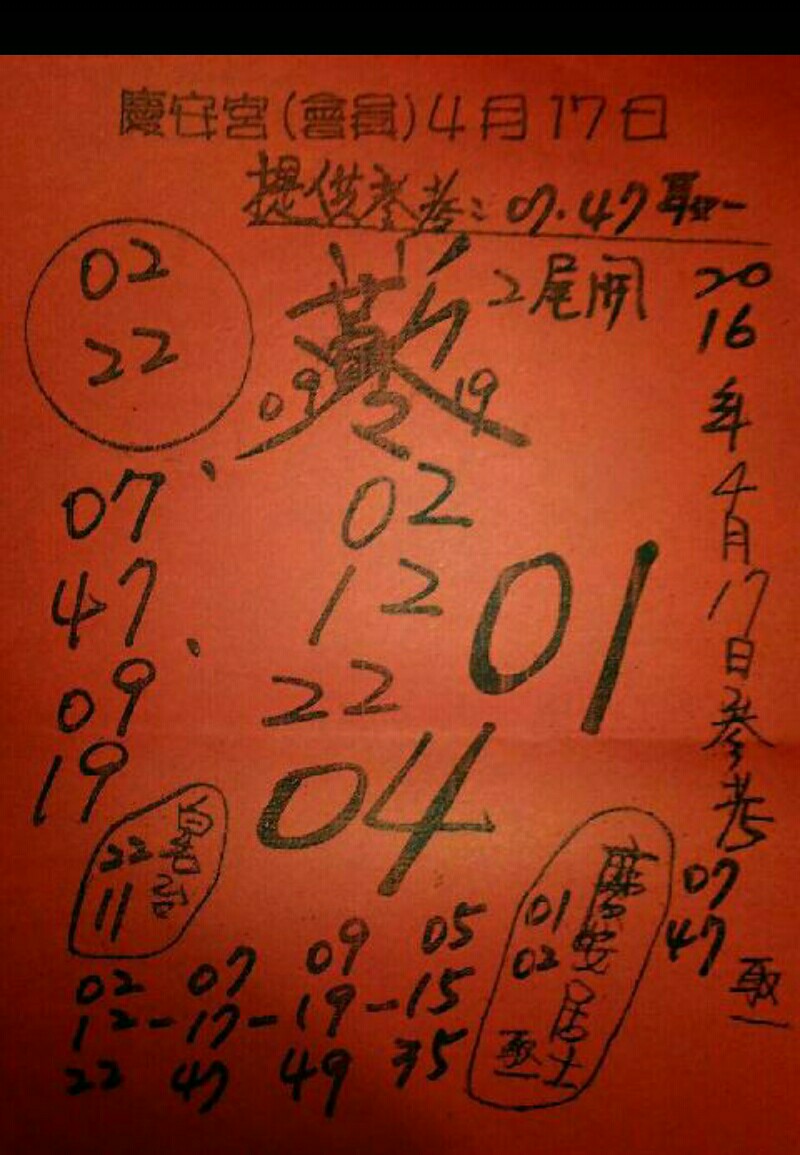 慶安宮(會員)4月17日
提供參考:07.47取一
02
22
2尾開
09 2 19
07
47
09
19
02
12
22
01
04
2016年4月17日參考
07
47
取一
22
11
01
02
慶安居士
取一
02 07 09 05
12-17-19-15
22 47 49 35